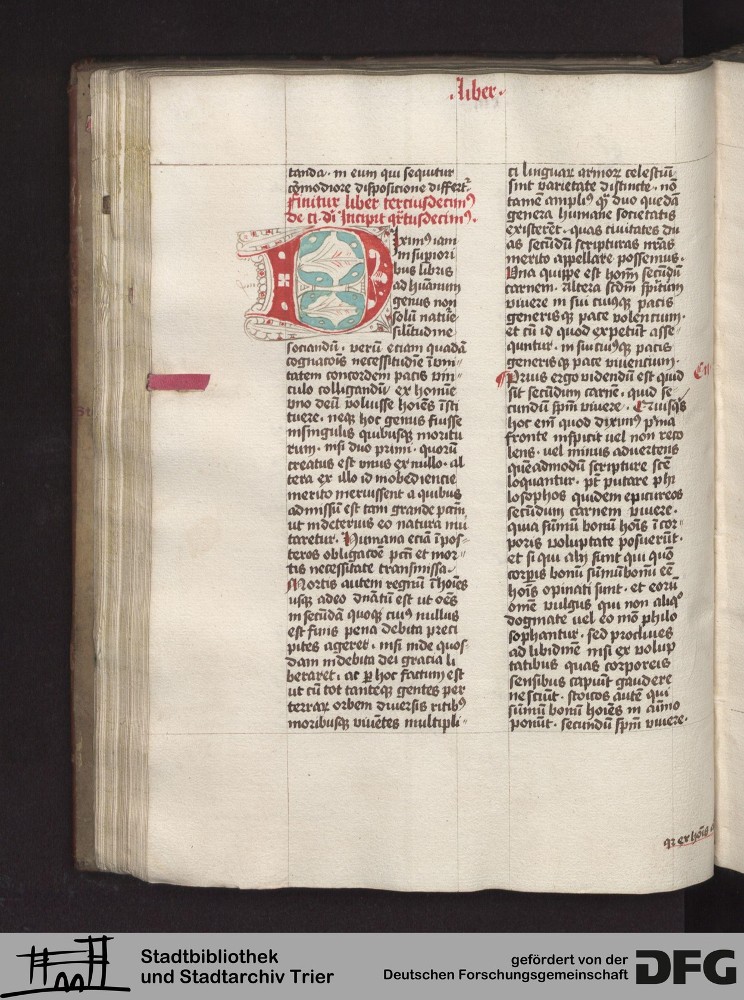 .liber.
tanda. in eum qui sequitur
cōmodiore dispositione differt᷑
Finitur liber terciusdecimꝰ
de ci. dī Incipit qr̄tusdecimꝰ.
Diximꝰ iam
in supiori
bus libris
ad hūanum
genus non
solū nature
silitudine
sociandū. verū eciam quadā
cognacōis necessitudīe ī vni
tatem concordem pacis vin
culo colligandū ex homīe
vno deū voluisse hoīes īsti
tuere. neqꝫ hoc genus fuisse
insingulis quibusqꝫ moritu
rum. nisi duo primi. quorū
creatus est vnus ex nullo. al
tera ex illo id mobediencie
merito meruissent a quibus
admissū est tam grande pcc̄m
ut in deterius eo natura mu
taretur. Humana eciā ī pos
teros obligacōe pcc̄i et mor
tis necessitate transmissa.
Mortis autem regnū ī hoīes
usqꝫ adeo dn̄atū est ut oēs
in secūdā quoqꝫ cuiꝰ nullus
est finis pena debita preci
pites ageret. nisi inde quos
dam indebita dei gracia li
beraret. ac p hoc factum est
ut cū tot tanteqꝫ gentes per
terraꝝ orbem diuersis ritibꝰ
moribusqꝫ viuētes multipli
ci linguaꝝ armoꝝ celestiū
sint varietate distincte. nō
tamē ampliꝰ qͣꝫ duo quedā
genera humane societatis
existerēt. quas ciuitates du
as secūdū scripturas nr̄as
merito appellare possemus.
Vna quippe est hoīm secūdū
carnem. Altera scdm sp̄itum
viuere in sui cuiꝰqꝫ pacis
generisqꝫ pace volencium.
et cū id quod expetūt asse
quntur. in sui cuiꝰqꝫ pacis
generisqꝫ pace viuencium.
Prius ergo videndū est quid
sit secūdum carnē. quid se
cundū sp̄m viuere. Quisqͥs
hoc em̄ quod diximꝰ p̄ma
fronte inspicit uel non reco
lens. uel minus aduertens
queadmodū scripture scē
loquantur. pt̄ putare phi
losophos quidem epicureos
secūdum carnem viuere.
quia sūmū bonū hoīs ī cor
poris voluptate posuerūt.
et si qui alij sunt qui quoͦ
corpis bonū sūmū bonū eē
hoīs opinati sunt. et eorū
omē vulgus qui non aliqͦ
dogmate uel eo mō philo
sophantur. sed procliues
ad libidinē nisi ex volup
tatibus quas corporeis
sensibus capiūt gaudere
nesciūt. stoicos autē qui
sūmū bonū hoīes in aīmo
ponūt. secundū sp̄m viuere.
qꝫ ex hoīg
Stadtbibliothek
und Stadtarchiv Trier
gefördert von der
Deutschen Forschungsgemeinschaft
DFG